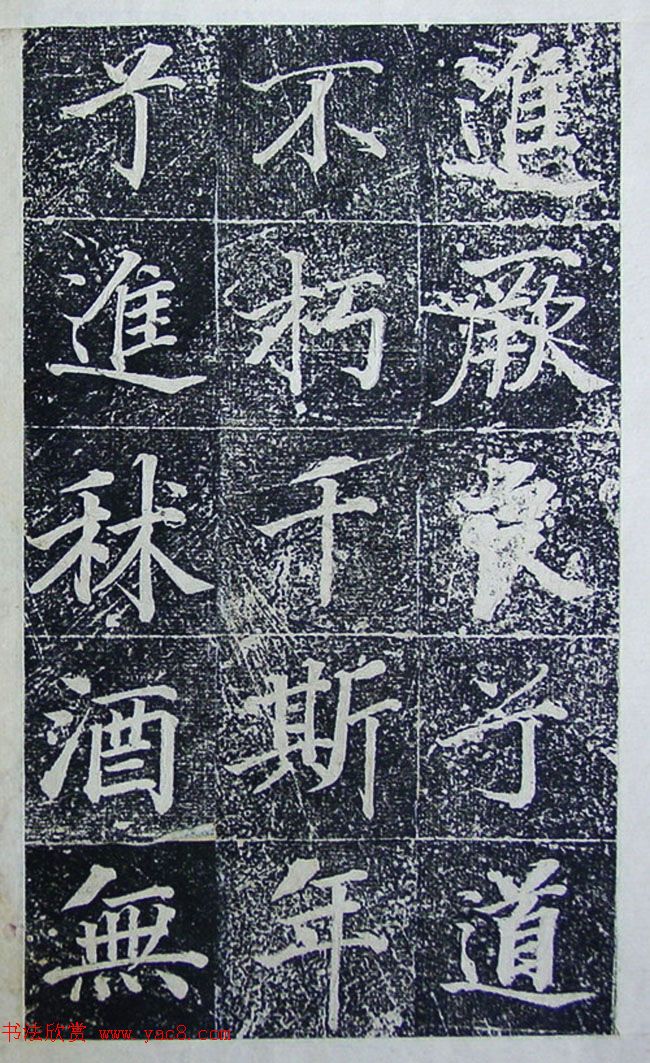 進厥良兮道
不朽千斯年
兮進秫酒無
书法欣赏 www.yac8.com